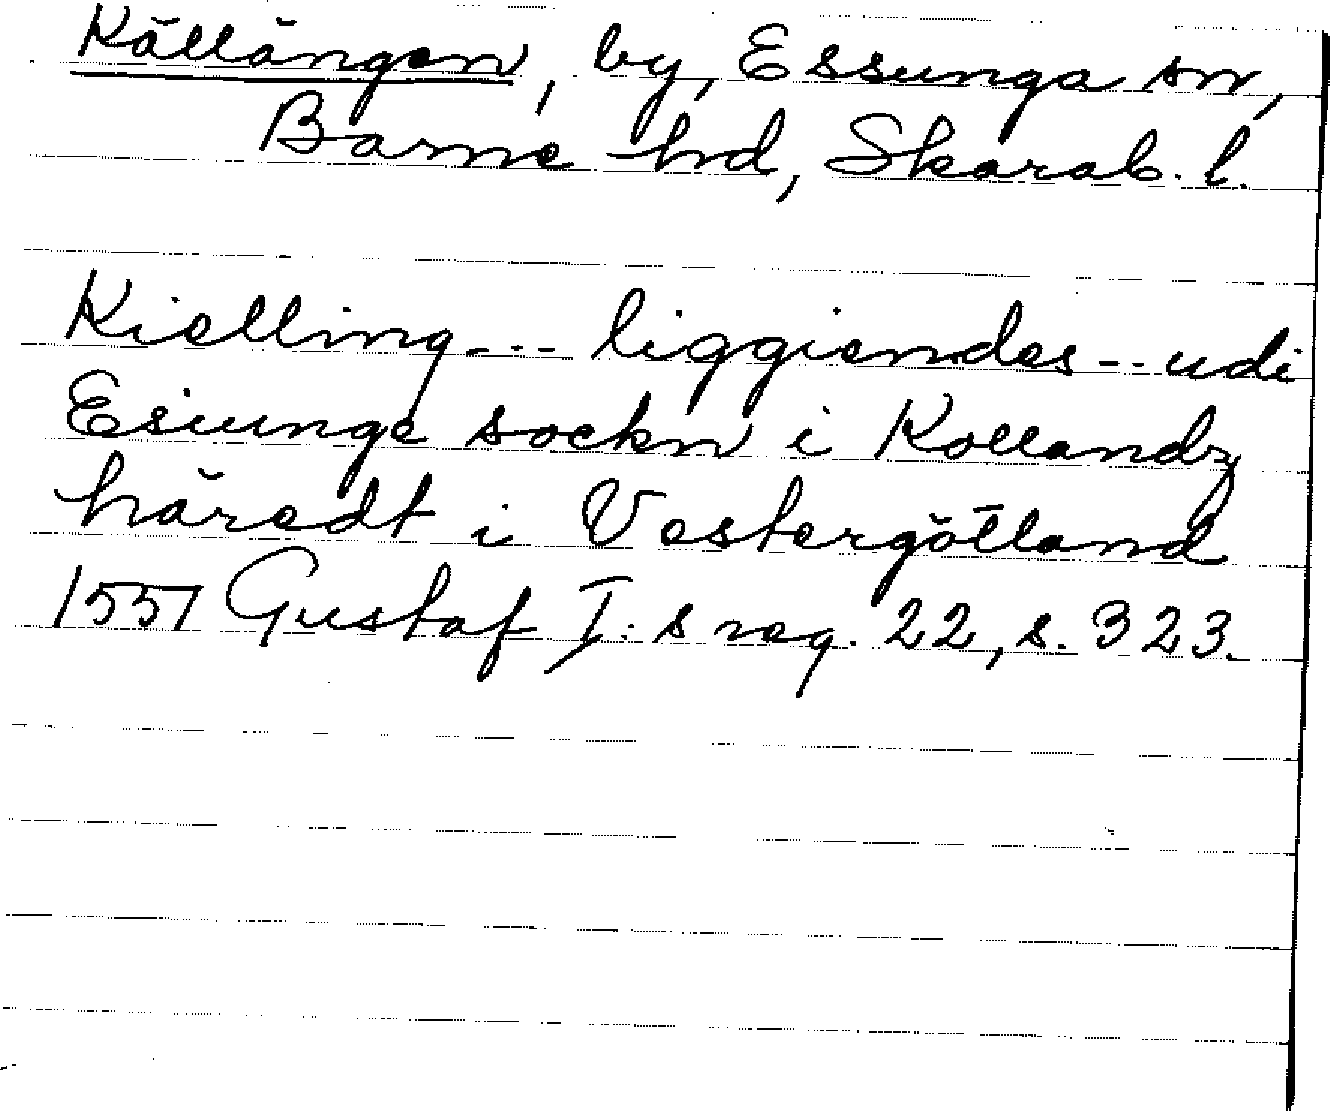 Källängen, by, Essunga sn,
Barne hd, Skarab. l.
Kielling --- liggiendes -- udi
Esiunge sockn i Kollandz
häredt i Vestergötland
1557 Gustaf I:s reg. 22, s. 323.